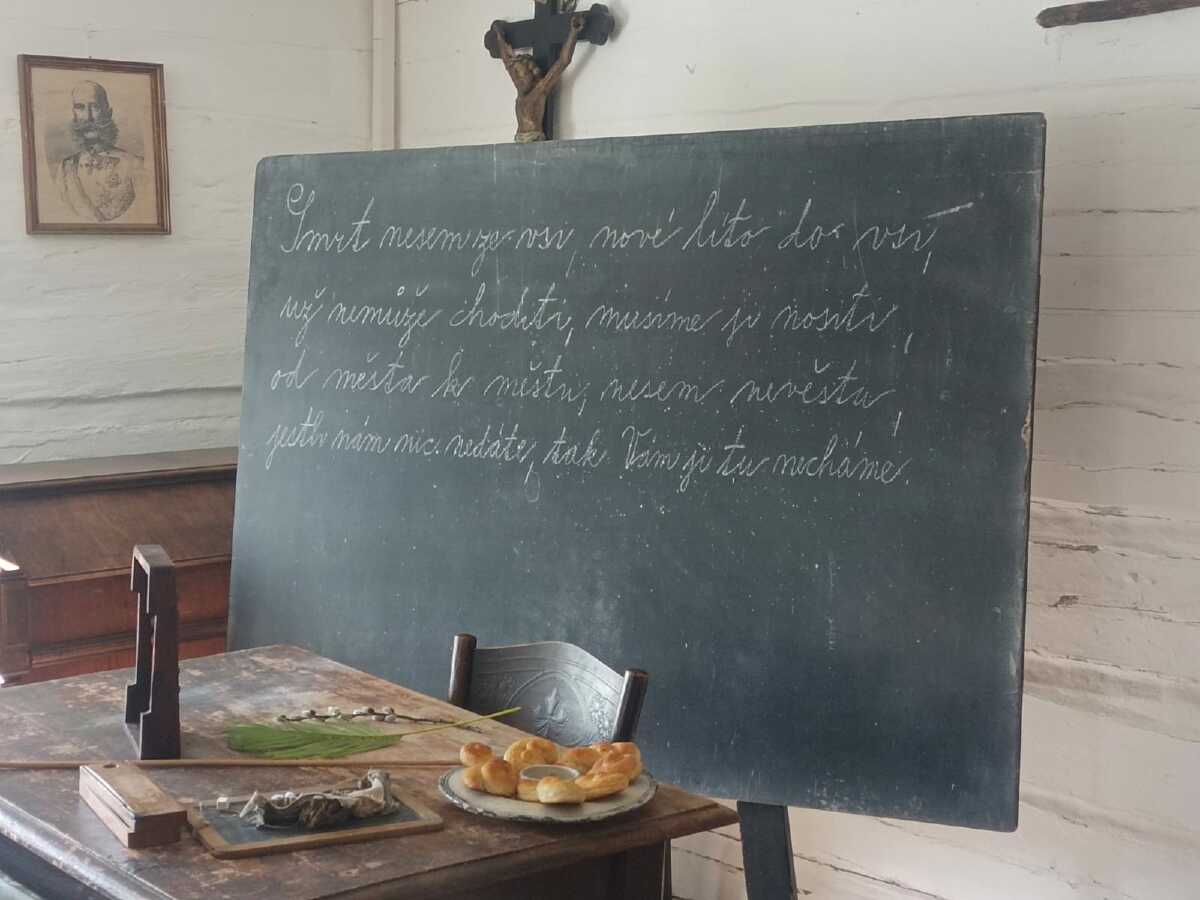 Smrt nesem ze vsi, nové líto do vsi,
už nemůže choditi, musíme ji nositi,
od města k městu, nesem nevěstu,
jestli nám nic nedáte, tak Vám ji tu necháme!